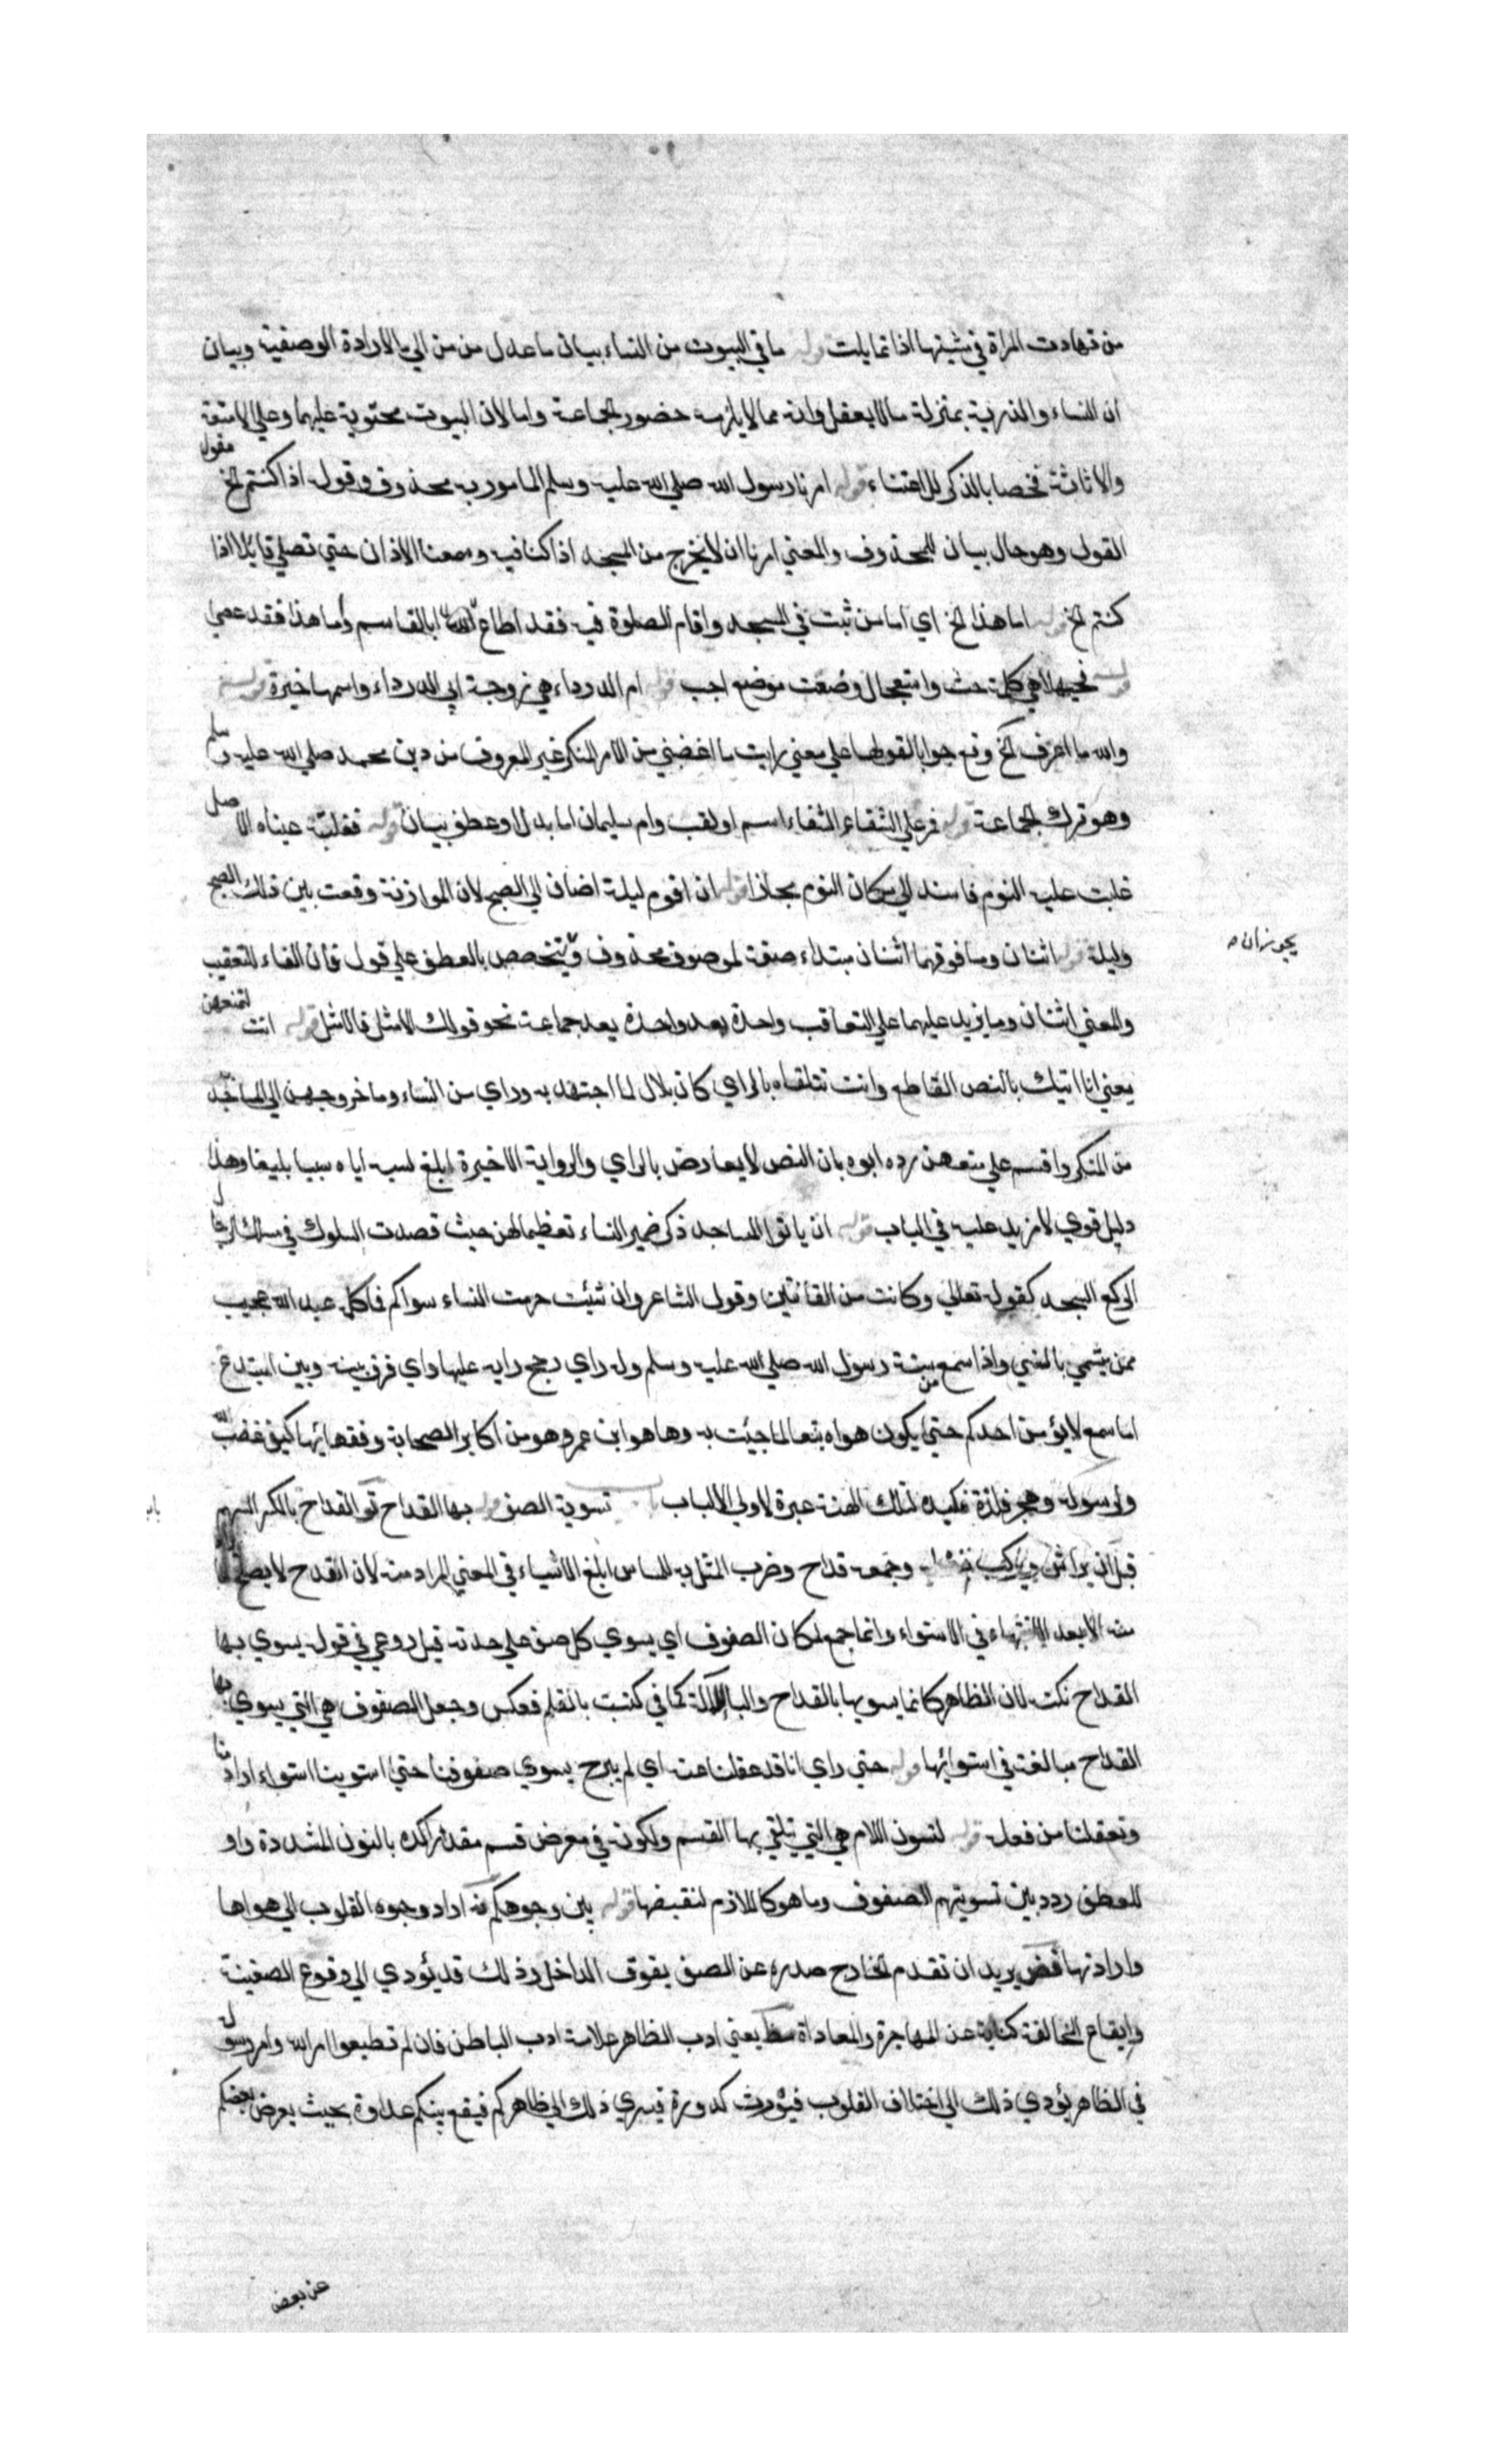 من تهادت المراة في مشيتها اذا تمايلت قوله ما في البيوت من النساء بيان ما عدل من من الي ما لارادة الوصفية وبيان
ان النساء والذرية بمنزلة ما لا يعقل وانه مما لا يلزمه حضور الجماعة واما لان البيوت محتوية عليهما وعلي الامتعة
والاثاثة فخصا بالذكر للاعتناء قوله امرنا رسول الله صلي الله عليه وسلم المامور به محذوف وقوله اذا كنتم الخ مقول
القول وهو حال بيان للمحذوف والمعني امرنا ان لا نخرج من المسجد اذا كنا فيه وسمعنا الاذان حتي نصلي قايلا اذا
كنتم الخ قوله اما هذا الخ اي اما من ثبت في المسجد واقام الصلوة فيه فقد اطاع ابا القاسم وأما هذا فقد عصي
قوله فحيهلا هي كلمة حث واستعجال وضعت موضع اجب قوله ام الدرداء هي زوجة ابي الدرداء واسمها خيرة قوله
والله ما اعرف الخ وقع جوابا لقولها علي معني رايت ما اغضبني من الامر المنكر غير المعروف من دين محمد صلي الله عليه وسلم
وهو ترك الجماعة قوله فمر علي الشفاء الشفاء اسم او لقب وام سليمان اما بدل او عطف بيان قوله فغلبته عيناه الاصل
غلبت عليه النوم فاسند الي مكان النوم مجازا قوله ان اقوم ليلة اضاف الي الصبح لان الموازنة وقعت بين ذلك الصبح
وليلة قوله اثنان وما فوقهما اثنان مبتداء صفة لموصوف محذوف ويتخصص بالعطف علي قول فان الفاء للتعقيب
يجوز ان
والمعني اثنان وما يزيد عليهما علي التعاقب واحدة بعد واحدة يعد جماعة نحو قولك الامثل فالامثل قوله انت لتمنعهن
يعني انا اتيك بالنص القاطع وانت تتلقاه بالراي كان بلال لما اجتهد به وراي من النساء وما خروجهن الي المساجد
من المنكر واقسم علي منعهن رده ابوه بان النص لا يعارض بالراي والرواية الاخيرة ابلغ لسبه اياه سبا بليغا وهذا
دليل قوي لا مزيد عليه في الباب قوله ان ياتوا المساجد ذكر ضمير النساء تعظيما لهن حيث قصدت السلوك في مسلك الرجال
الركع السجد كقوله تعالي وكانت من القانتين وقول الشاعر وان شئت حرمت النساء سواكم فاكلم عبد الله عجيب
ممن يتسمي بالسني واذا سمع من سنة رسول الله صلي الله عليه وسلم وله راي رجح رايه عليها واي فرق بينه وبين المبتدع
اما سمع لا يؤمن احدكم حتي يكون هواه تبعا لما جئت به وها هو ابن عمر وهو من اكابر الصحابة وفقهائها كيف غضب لله
ولرسوله وهجر فلذة كبده لتلك الهنة عبرة لاولي الالباب باب تسوية الصف قوله بها القداح تو القداح بالكسر السهم
قبل ان يراش ويركب نصله وجمعه قداح وضرب المثل به للناس ابلغ الاشياء في المعني المراد منه لان القداح لا يصلح لما
منه الا بعد الانتهاء في الاستواء وانما جمع لمكان الصفوف اي يسوي كل صف علي حدته قيل روعي في قوله يسوي بها
القداح نكتة لان الظاهر كانما يسويها بالقداح والباء للالة كما في كتبت بالقلم فعكس وجعل الصفوف هي التي يسوي بها
القداح مبالغة في استوائها قوله حتي راي انا قد عقلنا عنه اي لم يبرح يسوي صفوفنا حتي استوينا استواء اراد منا
وتعقلنا من فعله قوله لتسون اللام هي التي يتلقي بها القسم ولكونه في معرض قسم مقدر اكده بالنون المشددة واو
للعطف ردد بين تسويتهم الصفوف وما هو كاللازم لنقيضها قوله بين وجوهكم فه اراد وجوه القلوب الي هواها
وارادتها قض يريد ان تقدم الخارج صدره عن الصف يفوق الداخل وذلك قد يؤدي الي وقوع الضغينة
وايقاع المخالفة كناية عن المهاجرة والمعاداة مظ يعني ادب الظاهر علامة ادب الباطن فان لم تطيعوا امر الله وامر رسوله
في الظاهر يؤدي ذلك الي اختلاف القلوب فيورث كدورة فيسري ذلك الي ظاهركم فيقع بينكم عداوة بحيث يعرض بعضكم
عن بعض